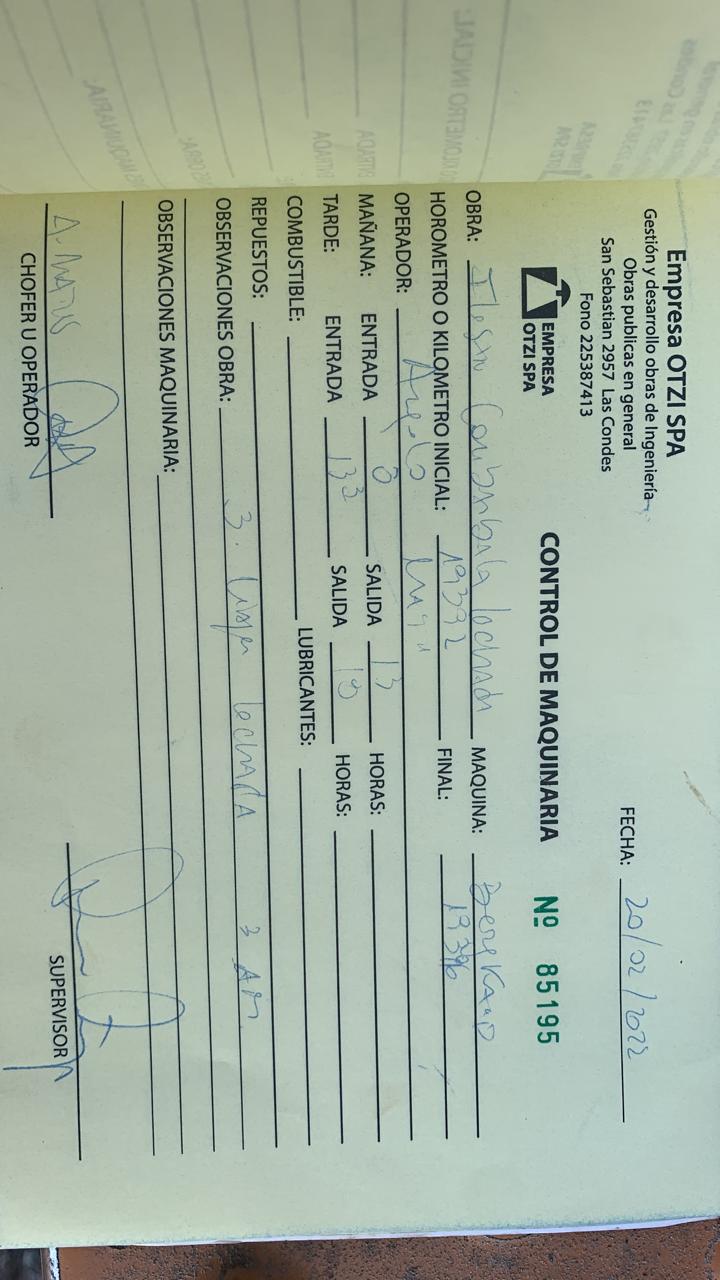 Empresa OTZI SPA
Gestión y desarrollo obras de Ingeniería
Obras publicas en general
San Sebastian 2957 Las Condes
Fono 225387413
FECHA: 20/02/2022
EMPRESA
OTZI SPA
CONTROL DE MAQUINARIA Nº 85195
OBRA: lechada MAQUINA:
HOROMETRO O KILOMETRO INICIAL: 19392 FINAL:
OPERADOR: Angelo
MAÑANA: ENTRADA 8 SALIDA 13 HORAS:
TARDE: ENTRADA SALIDA HORAS:
COMBUSTIBLE: LUBRICANTES:
REPUESTOS:
OBSERVACIONES OBRA: 3. lechada 3
OBSERVACIONES MAQUINARIA:
A. MATUS
CHOFER U OPERADOR
SUPERVISOR